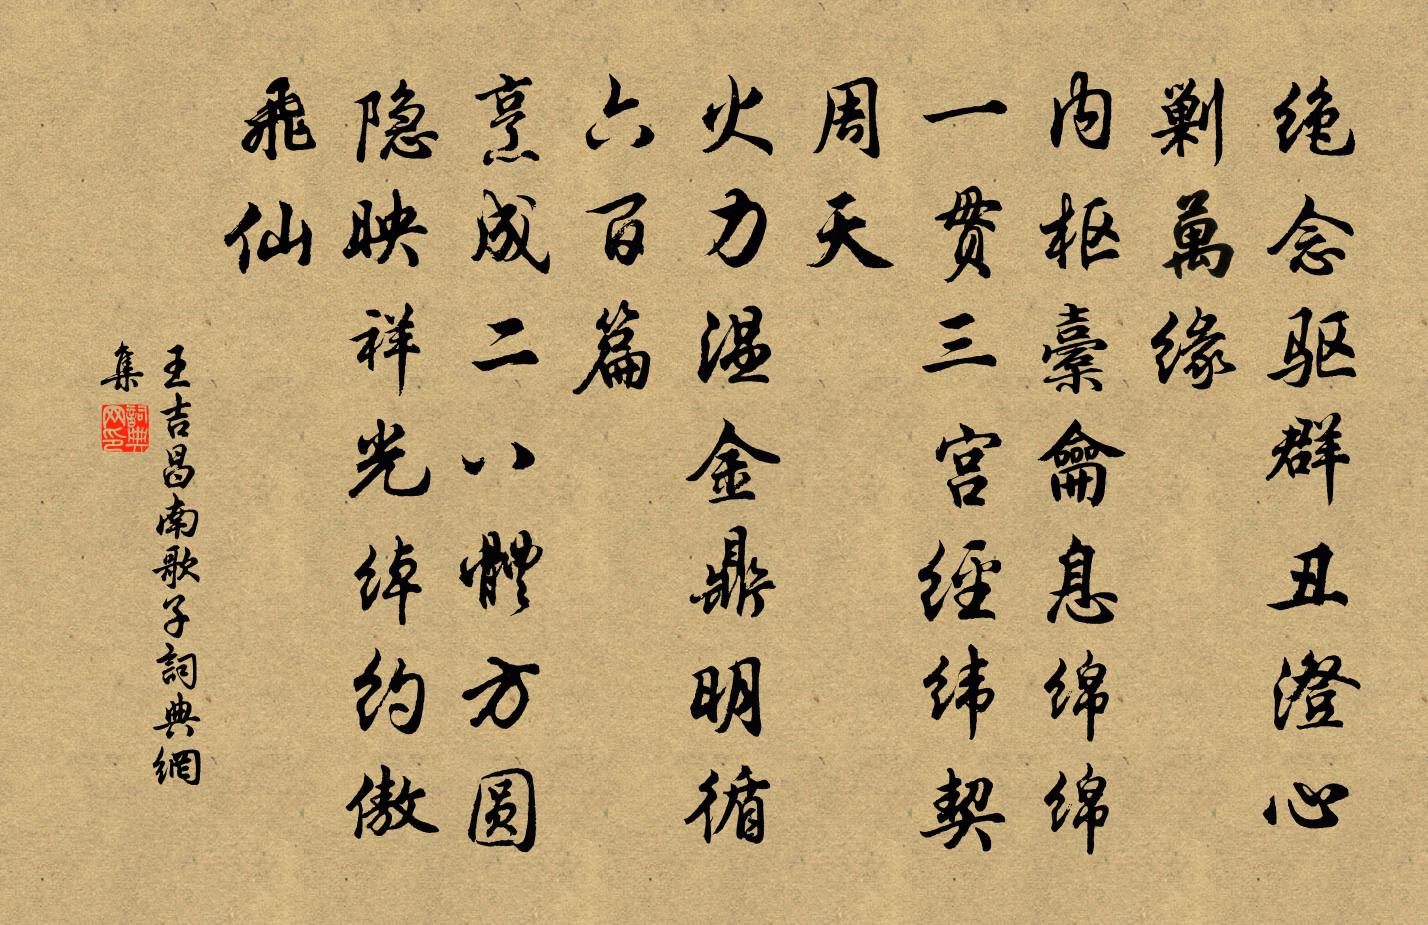 绝念驱群丑澄心
剿萬缘
内枢橐龠息绵绵
一贯三宫经纬契
周天
火力温金鼎明循
六百篇
烹成二八體方圆
隐映祥光绰约傲
飛仙
王吉昌南歌子詞典網
集
詞典
网印